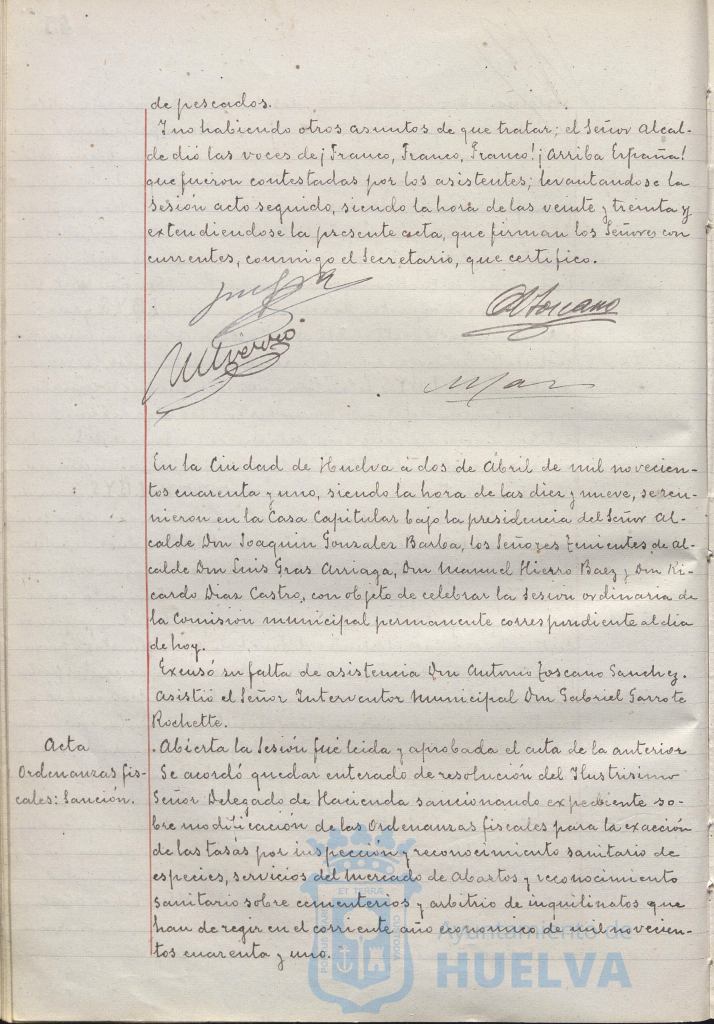 de pescados.
Y no habiendo otros asuntos de que tratar; el Señor Alcal-
de dió las voces de ¡Franco, Franco, Franco! ¡Arriba España!
que fueron contestadas por los asistentes; levantandose la
Sesión acto seguido, siendo la hora de las veinte y treinta y
extendiendose la presente acta, que firman los Señores con
currentes, conmigo el Secretario, que certifico.
A Toscano
M Hierro
En la Ciudad de Huelva a dos de Abril de mil novecien-
tos cuarenta y uno, siendo la hora de las diez y nueve, se reu-
nieron en la Casa Capitular bajo la presidencia del Señor Al-
calde Don Joaquin Gonzalez Barba, los Señores Tenientes de al-
calde Don Luis Gras Arriaga, Don Manuel Hierro Baez y Don Ri-
cardo Diaz Castro, con objeto de celebrar la Sesión ordinaria de
la Comisión municipal permanente correspondiente al dia
de hoy.
Excusó su falta de asistencia Don Antonio Toscano Sanchez.
Asistió el Señor Interventor Municipal Don Gabriel Garrote
Rochette.
Acta
Abierta la Sesión fué leida y aprobada el acta de la anterior
Ordenanzas fis-
cales: Sanción.
Se acordó quedar enterado de resolución del Ilustrisimo
Señor Delegado de Hacienda sancionando expediente so-
bre modificación de las Ordenanzas fiscales para la exacción
de las tasas por inspección y reconocimiento sanitario de
especies, servicios del Mercado de Abastos y reconocimiento
sanitario sobre cementerios y arbitrio de inquilinatos que
han de regir en el corriente año economico de mil novecien-
tos cuarenta y uno.
ET TERRÆ
PORTUS MARIS
CUSTODIA
Ayuntamiento de
HUELVA